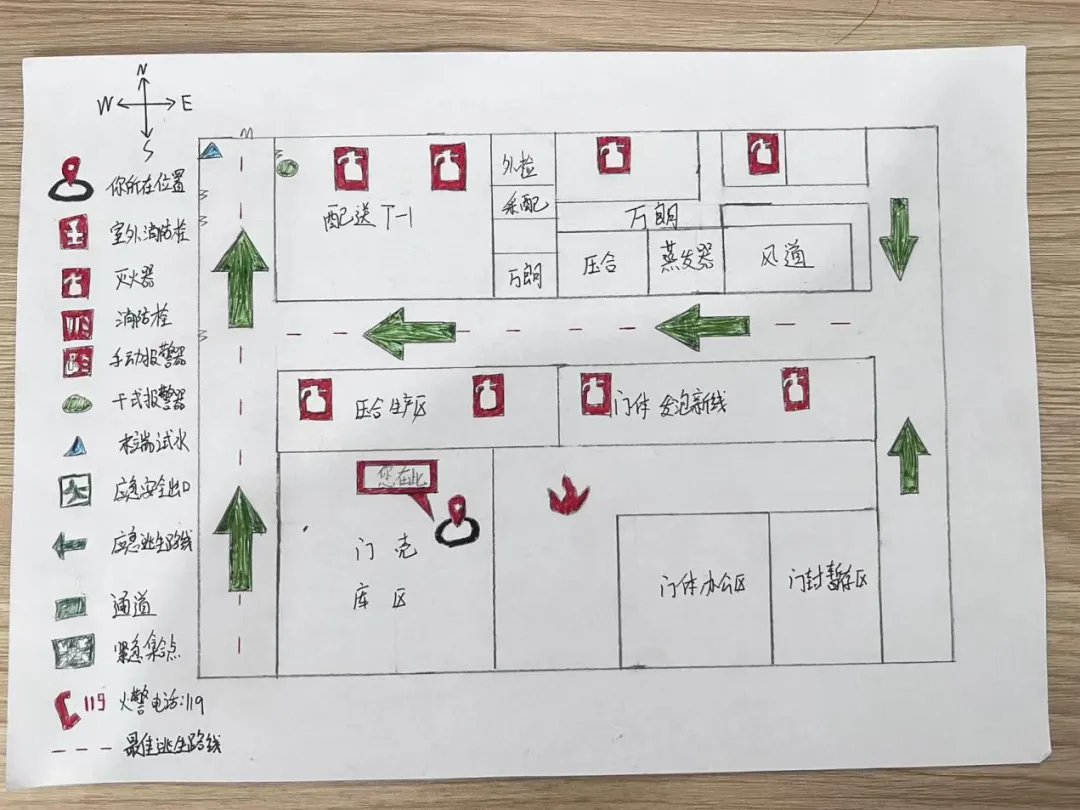 N
W E
S
你所在位置
室外消防栓
灭火器
消防栓
手动报警器
干式报警器
末端试水
应急安全出口
应急逃生路线
通道
紧急集合点
119 火警电话:119
最佳逃生路线
配送T-1
外检
乐配
万朗
万朗
压合
蒸发器
风道
压合生产区
门体发泡新线
您在此
门壳
库区
门体办公区
门封暂存区